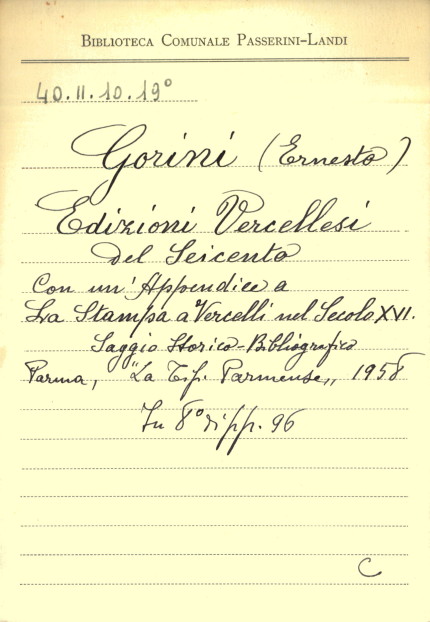 BIBLIOTECA COMUNALE PASSERINI-LANDI
40.II.10.19°
Gorini (Ernesto)
Edizioni Vercellesi
del Seicento
Con un'Appendice a
La Stampa a Vercelli nel Secolo XVI.
Saggio Storico-Bibliografico
Parma, "La Tip. Parmense„ 1958
In 8° di pp. 96
C